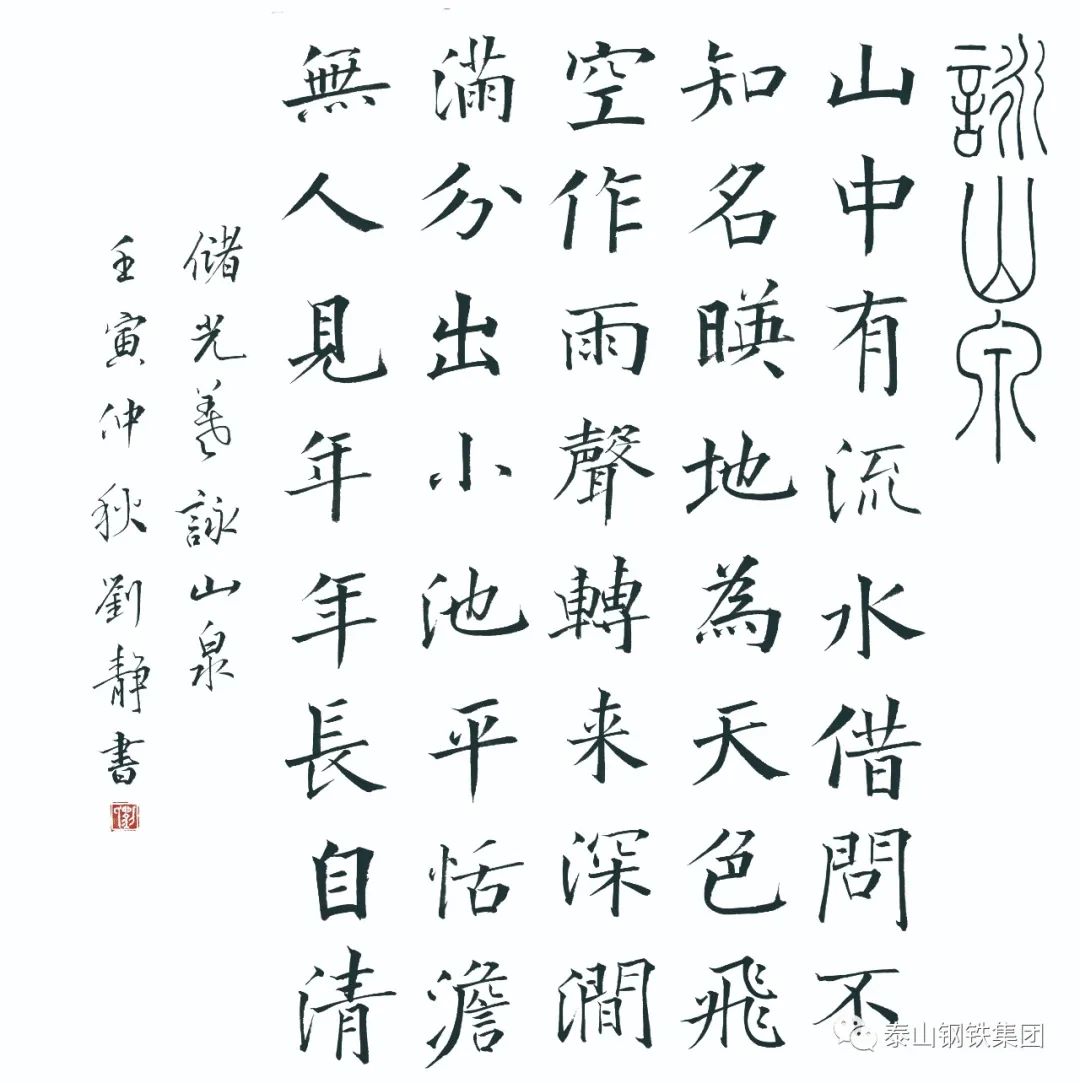 詠山泉
山中有流水借問不
知名暎地為天色飛
空作雨聲轉来深澗
滿分出小池平恬澹
無人見年年長自清
儲光羲詠山泉
壬寅仲秋劉靜書
泰山钢铁集团